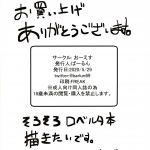 お買い上げ
ありがとうございます。
サークル おーえす
発行人 ばーるん
発行日 2020/5/29
twitter@barlun89
印刷 FREAK
※成人向け同人誌の為
18歳未満の閲覧・購入を禁止します。
そろそろロベル夕本
描きたいです。